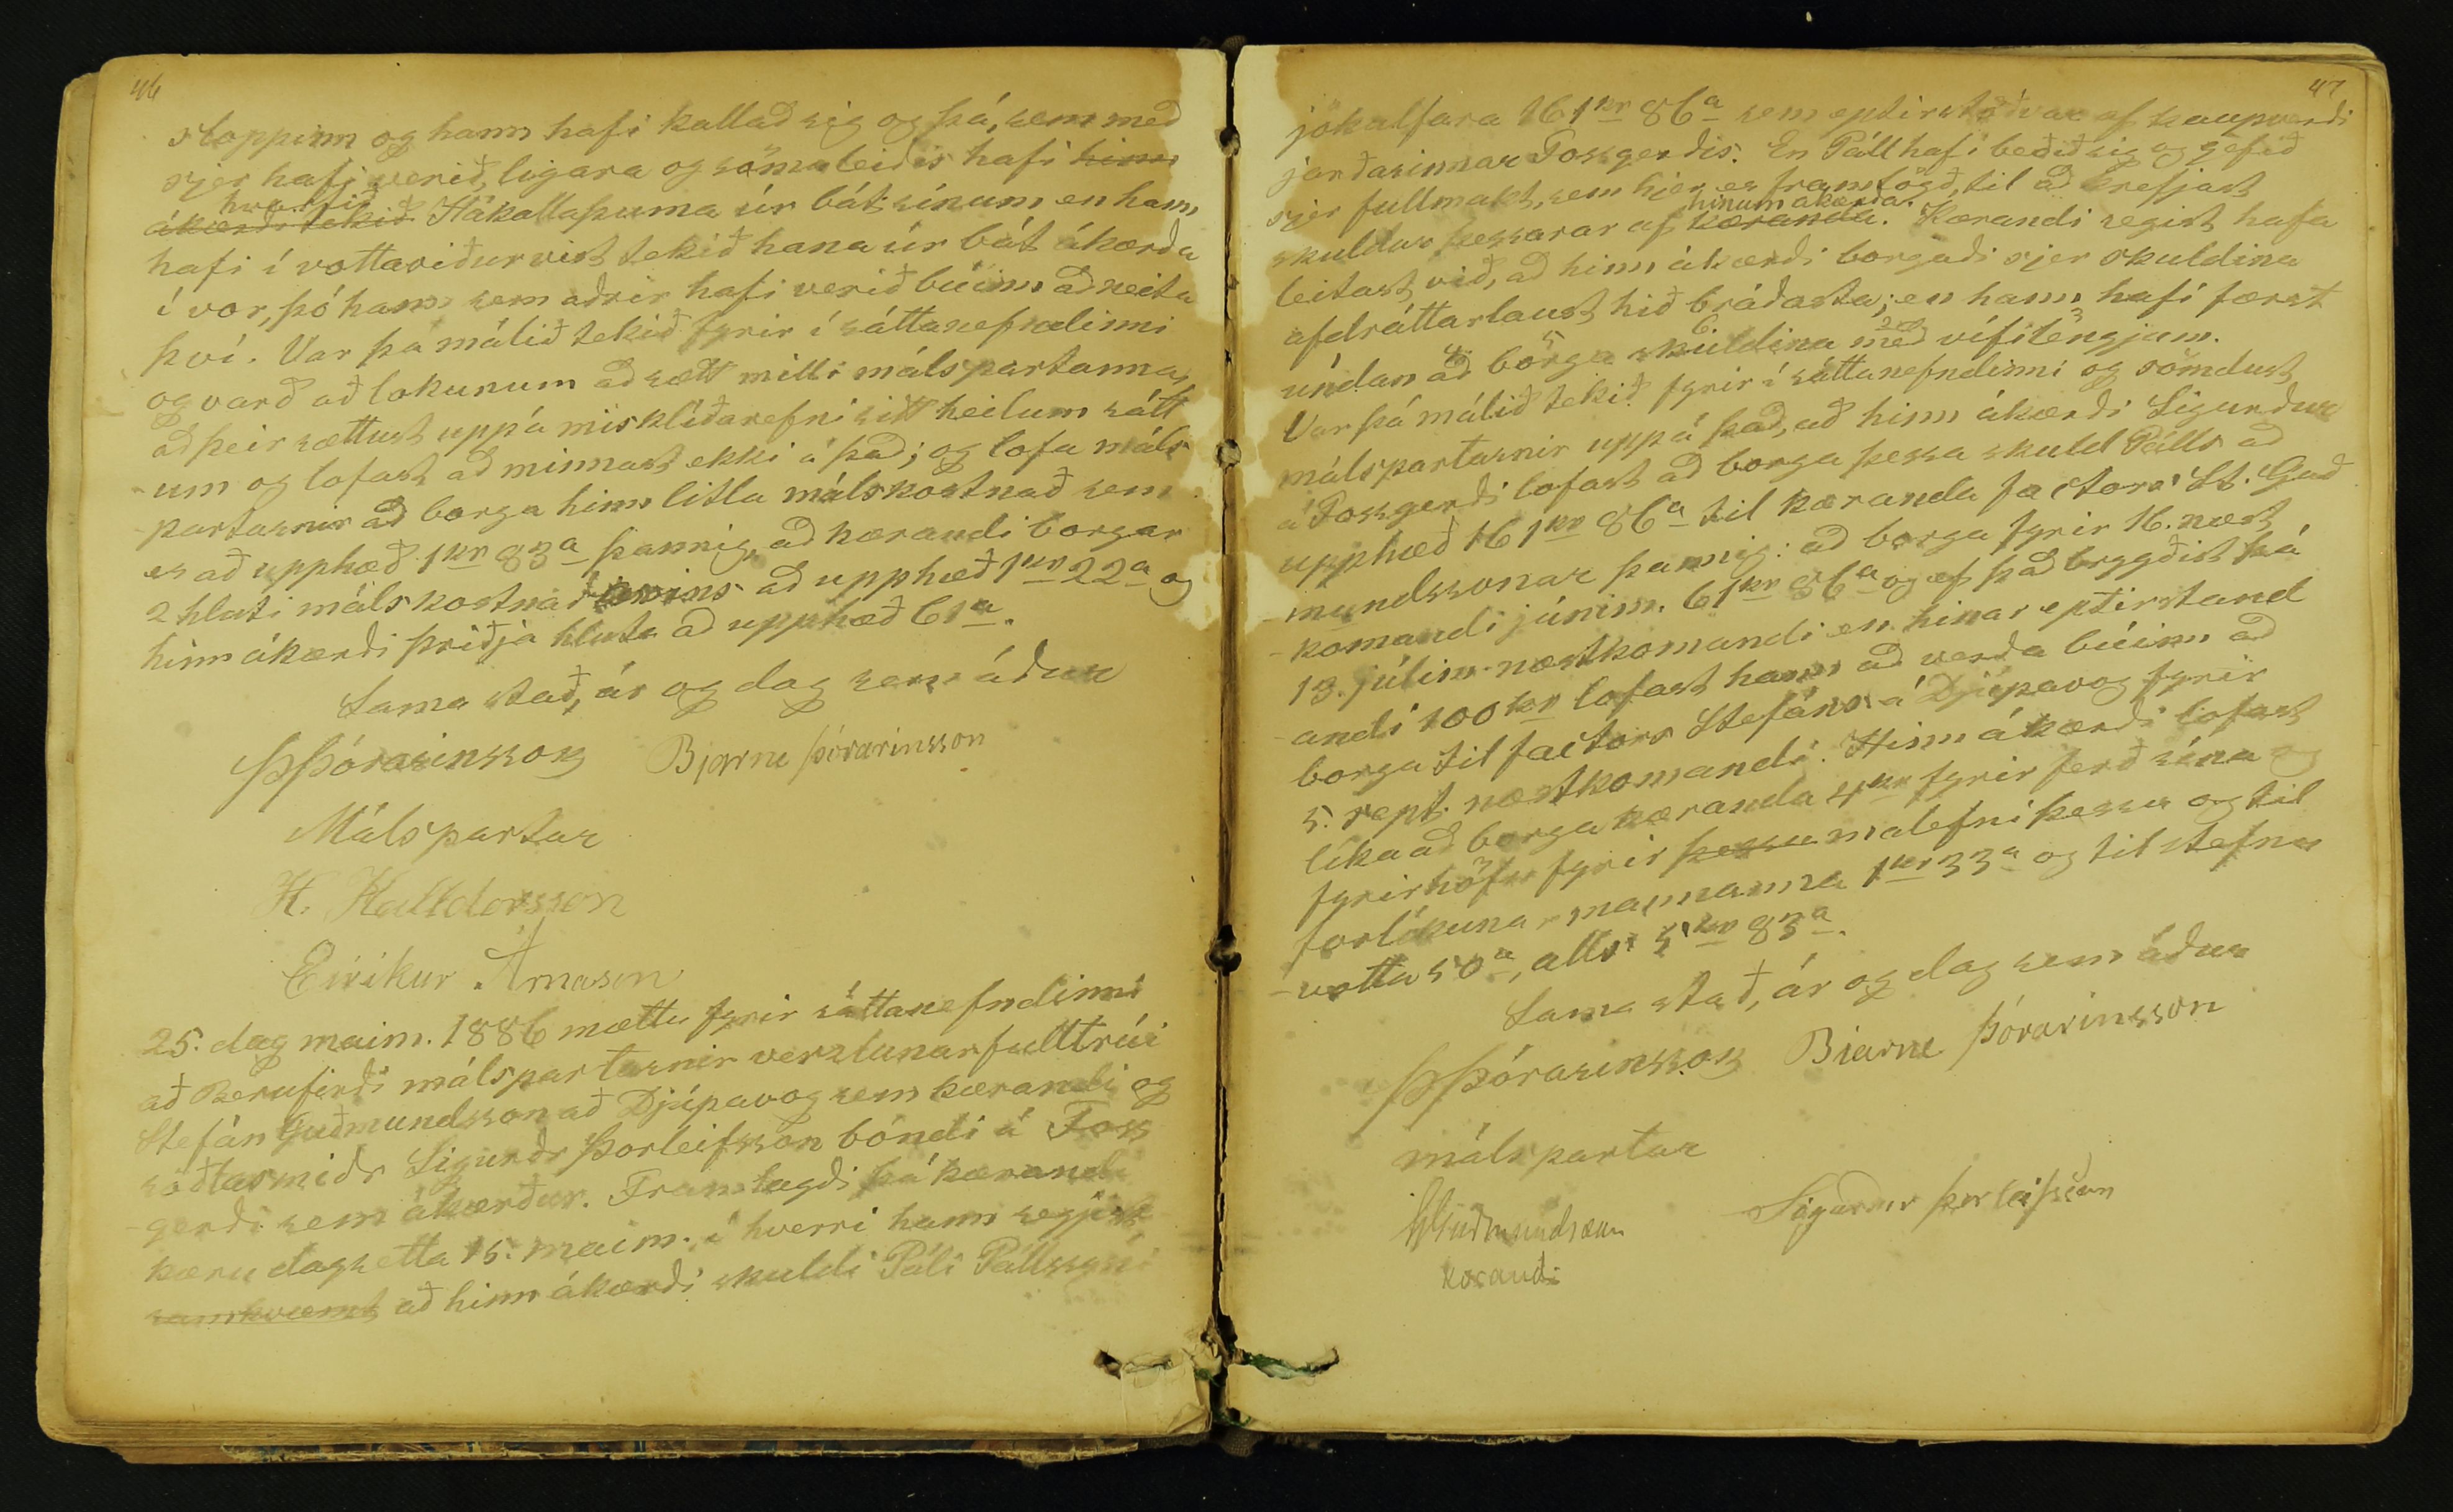 46
sloppinn og hann hafi kallað sig og þá, sem með
sjer hafi verið, ligara og sömuleiðis hafi hinn
ákærði tekið hvorfið Hákallaþuma úr bát sínum en hann
hafi í vottaviðurvist tekið hana úr bát ákærða
í vor, þó hann sem aðrir hafi verið búinn að neita
því. Var þá málið tekið fyrir í sáttanefndinni
og varð að lokunum að sætt milli málspartanna,
að þeir sættust uppá misklíðarefni sitt heilum sátt
-um og lofast að minnast ekki á það; og lofa máls
-partarnir að borga hinn litla málskostnað sem
er að upphæð 1kr 83a þannig, að kærandi borgar
2 hluti málskostnaðarins að upphæð 1kr 22a og
hinn ákærði þriðja hluta að upphæð 61a.
Sama stað, ár og dag sem áður
ÞÞórarinsson Bjarni Þórarinsson
Málspartar
H. Halldorsson
Eiríkur Árnason
25. dag maim. 1886 mættu fyrir sáttanefndinni
að Berufirði málspartarnir verzlunarfulltrúi
Stefán Guðmundsson að Djúpavog sem kærandi og
söðlasmiðr Sigurðr Þorleifsson bóndi á Foss
-gerði sem ákærður. Framlagði þá kærandi
kæru dagsetta 15. maim. í hverri hann segist
samkvæmt að hinn ákærði skuldi Páli Pálssyni
47
jökulfara 161kr 86a sem eptirstöðvar af kaupverði
jarðarinnar Fossgerðis. En Páll hafi beðið sig og gefið
sjer fullmakt, sem hjer er framlögð, til að krefjast
skuldar þessarar af kæranda hinum ákærða. Kærandi segist hafa
leitast við, að hinn ákærði borgaði sjer skuldina
afdráttarlaust hið bráðasta; en hann hafi færst
undan að borga skuldina með vífilengjum.
Var þá málið tekið fyrir í sáttanefndinni og sömdust
málspartarnir uppá það, að hinn ákærði Sigurður
á Fossgerði lofast að borga þessa skuld Páls að
upphæð 161kr 86a til kæranda factors St. Guð
-mundssonar þannig: að borga fyrir 16. næst
-komandi júnim. 61kr 86a og ef það brygðist þá
13. júlim. næstkomandi en hinar eptirstand
-andi 100 kr lofast hann að verða búinn að
borga til factors Stefáns á Djúpavog fyrir
5. sept. næstkomandi. Hinn ákærði lofast
líka að borga kæranda 4kr fyrir ferð sína og
fyrirhöfn fyrir þessu malefni þessu og til
forlíkunarmannanna 1kr 33a og til stefnu
-votta 50a, alls 5kr 83a.
Sama stað, ár og dag sem áður
ÞÞórarinsson Bjarni Þórarinsson
málspartar
StGuðmundsson Sigurður Þorleifsson
kærandi